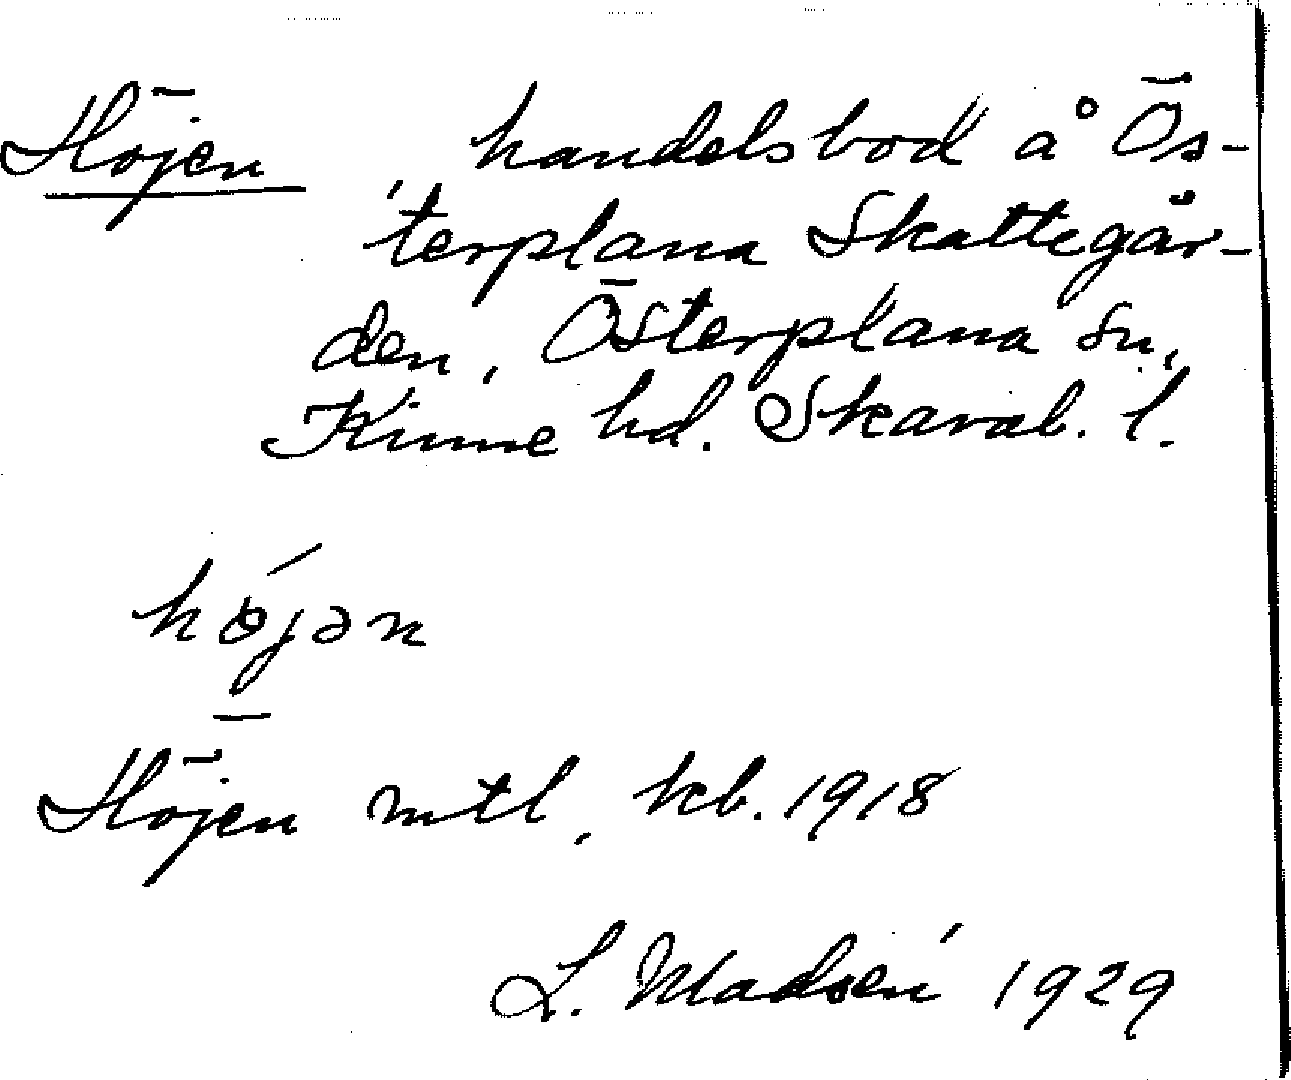 Höjen, handelsbod å Ös-
terplana Skattegår-
den, Österplana sn,
Kinne hd. Skarab. l.
hö́jən
Höjen mtl, kb. 1918
L. Madsén 1929